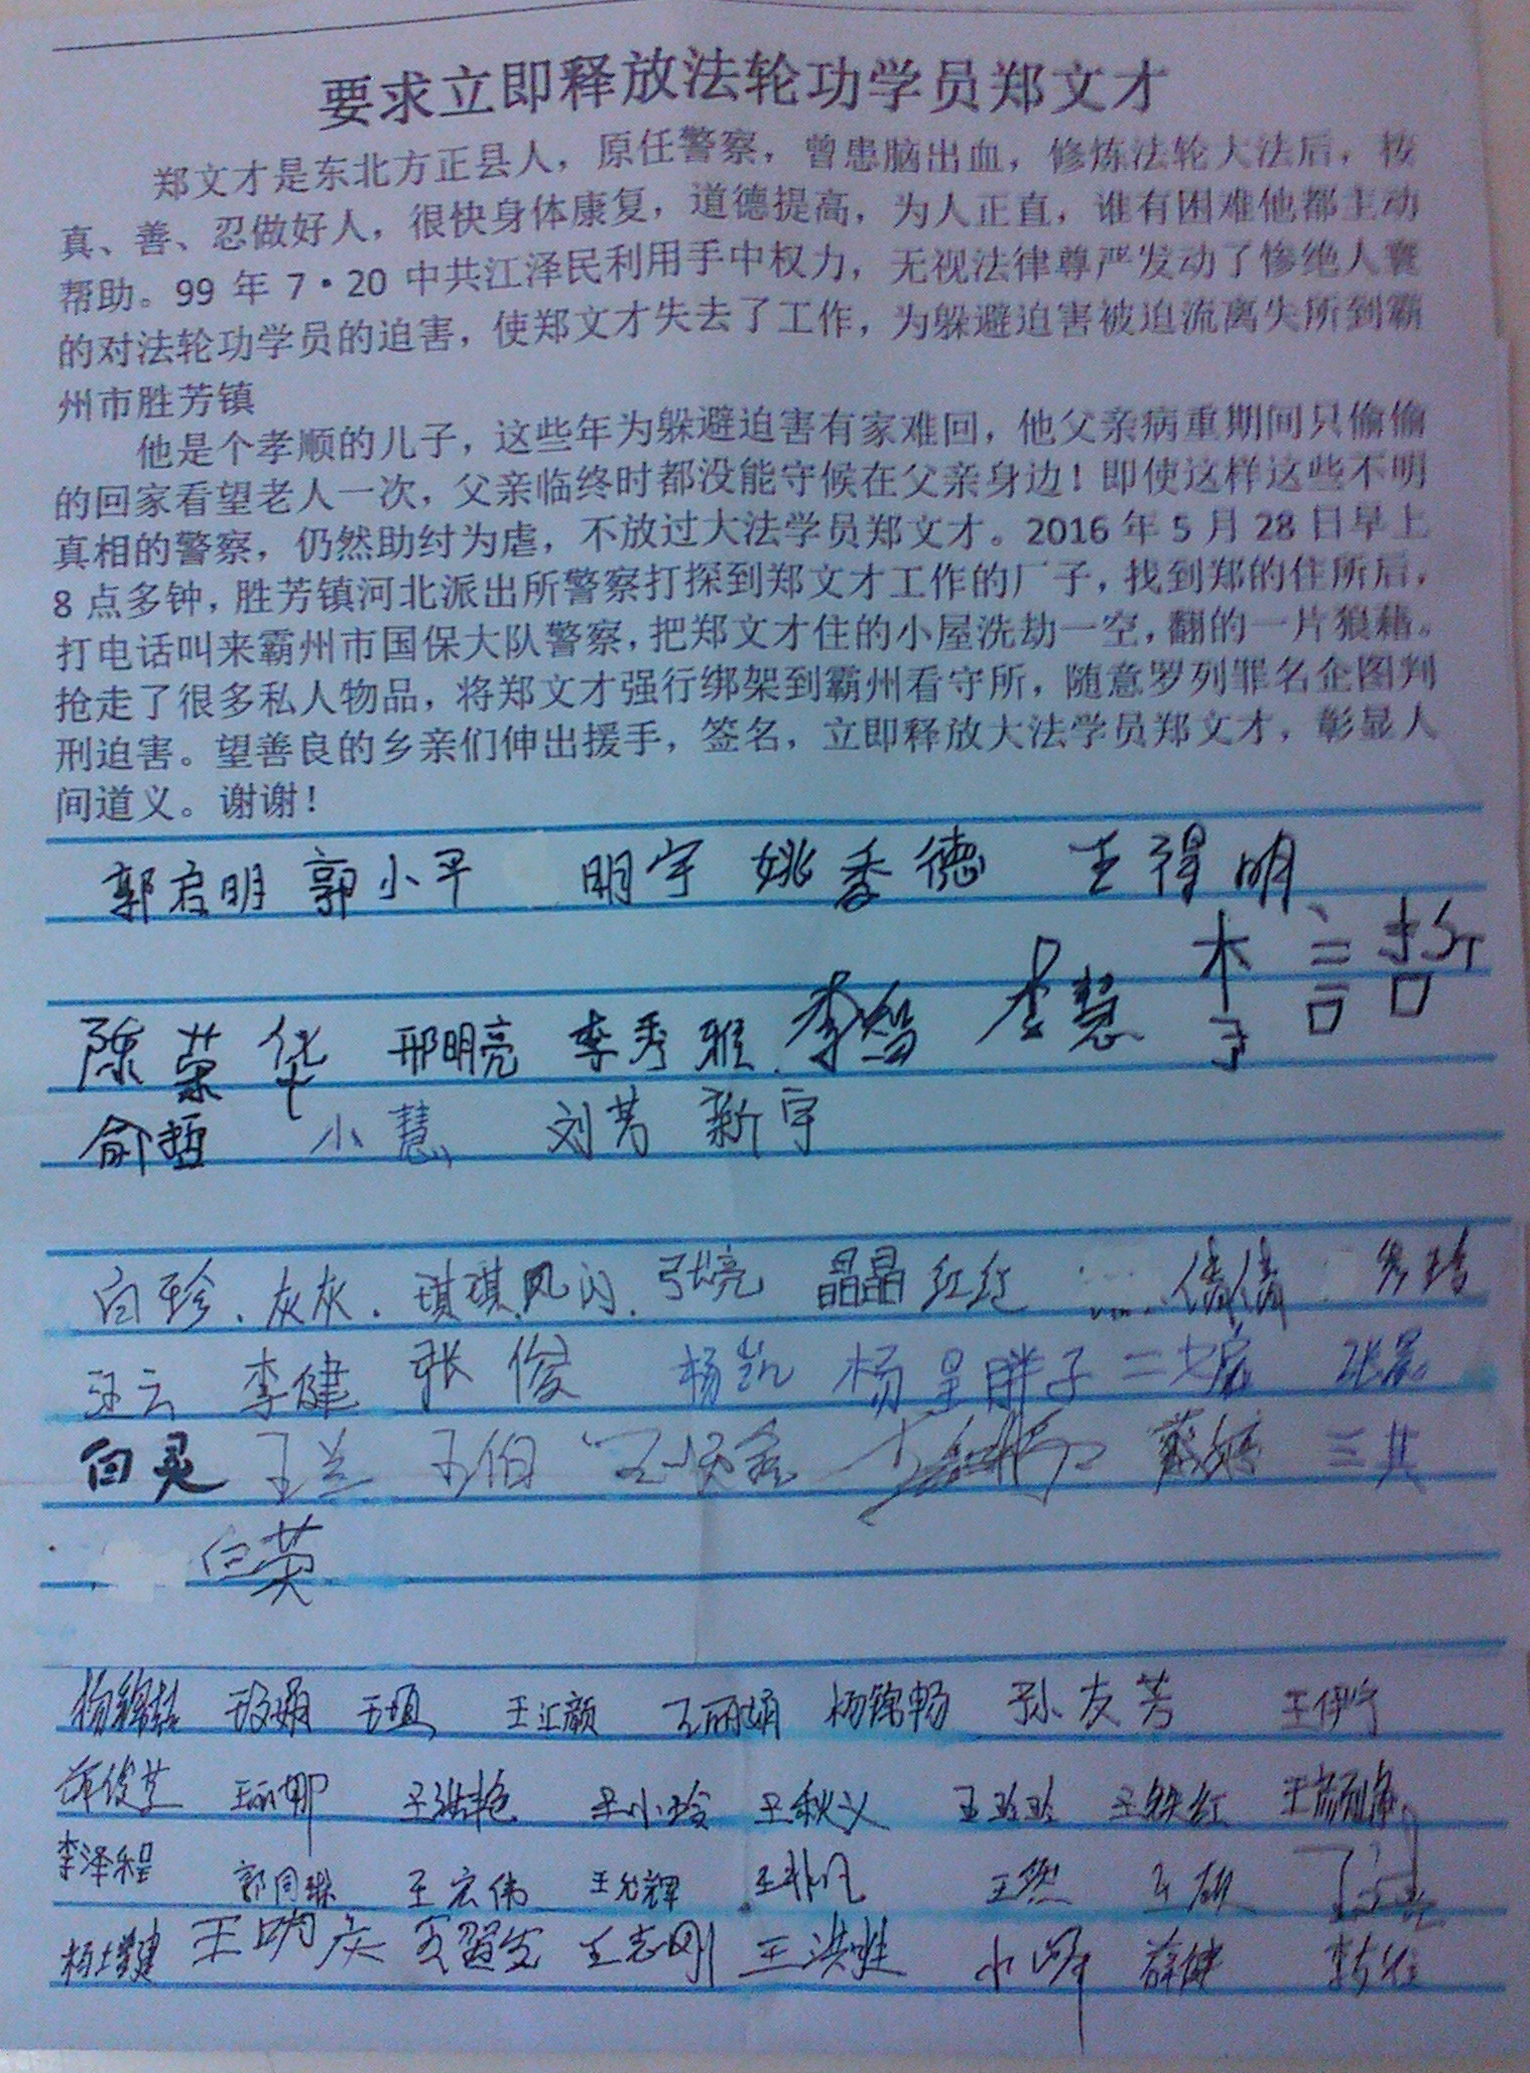 要求立即释放法轮功学员郑文才
郑文才是东北方正县人，原任警察，曾患脑出血，修炼法轮大法后，按
真、善、忍做好人，很快身体康复，道德提高，为人正直，谁有困难他都主动
帮助。99 年 7·20 中共江泽民利用手中权力，无视法律尊严发动了惨绝人寰
的对法轮功学员的迫害，使郑文才失去了工作，为躲避迫害被迫流离失所到霸
州市胜芳镇
他是个孝顺的儿子，这些年为躲避迫害有家难回，他父亲病重期间只偷偷
的回家看望老人一次，父亲临终时都没能守候在父亲身边！即使这样这些不明
真相的警察，仍然助纣为虐，不放过大法学员郑文才。2016 年 5 月 28 日早上
8 点多钟，胜芳镇河北派出所警察打探到郑文才工作的厂子，找到郑的住所后，
打电话叫来霸州市国保大队警察，把郑文才住的小屋洗劫一空，翻的一片狼藉。
抢走了很多私人物品，将郑文才强行绑架到霸州看守所，随意罗列罪名企图判
刑迫害。望善良的乡亲们伸出援手，签名，立即释放大法学员郑文才，彰显人
间道义。谢谢！
郭启明 郭小平 明宇 姚秀德 王得明
陈荣华 邢明亮 李秀雅 李智 李慧 李言哲
俞哲 小慧 刘芳 新宇
白珍 灰灰 琪琪 风闪 张亮 晶晶 红红 倩倩
汪云 李健 张俊 杨凯 杨呈 胖子
白灵 王兰 王伯 三共
白英
王汇颜 王丽娟 杨锦畅 孙友芳 王伊宁
王丽娜 王洪艳 王小玲 王秋义 王玲玲 王铁红
李泽程 郭同琳 王宏伟 王允辉 王然
王功庆 王志刚 王洪胜 小峰 薛健